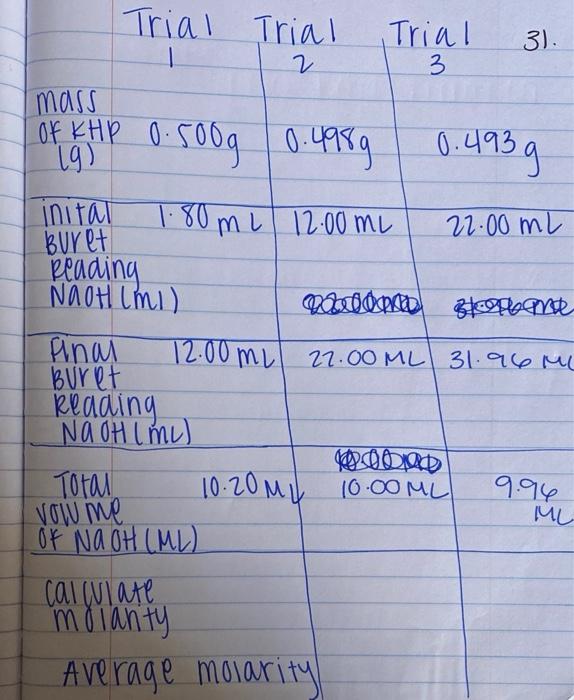 Trial Trial Trial 31.
1 2 3
mass
OF KHP 0.500g 0.498g 0.493 g
(g)
inital 1.80 mL 12.00 mL 22.00 mL
Buret
Reading
NaOH (ml)
Final 12.00 mL 22.00 ML 31.96 ML
Buret
Reading
NaOH (mL)
Total 10.20 ML 10.00 ML 9.96
volume ML
OF NaOH (ML)
calculate
molarity
Average molarity